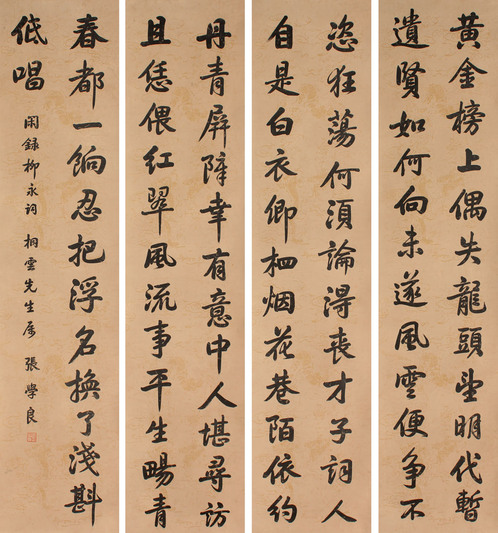 黄金榜上偶失龍頭望明代暫
遺賢如何向未遂風雲便争不
恣狂蕩何須論得喪才子詞人
自是白衣卿相烟花巷陌依約
丹青屏障幸有意中人堪尋訪
且恁偎紅翠風流事平生暢青
春都一餉忍把浮名換了淺斟
低唱
閑録柳永词 桐雲先生属 張學良